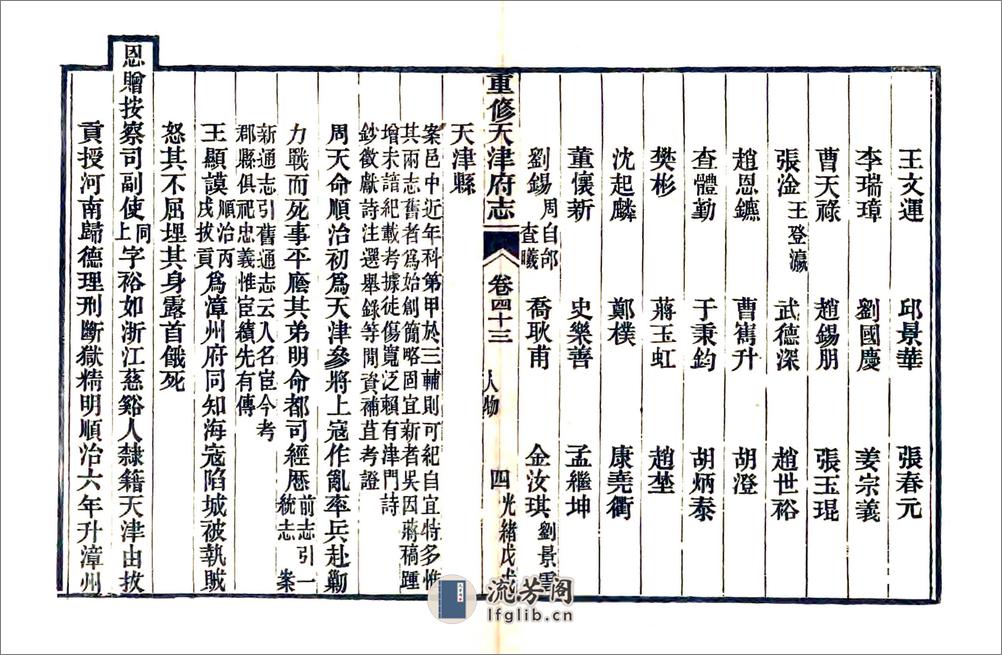 王文運 邱景華 張春元
李瑞璋 劉國慶 姜宗義
曹天祿 趙錫朋 張玉琨
張淦王登瀛 武德深 趙世裕
趙恩鑣 曹寯升 胡澄
查體勤 于秉鈞 胡炳泰
樊彬 蔣玉虹 趙埜
沈起麟 鄭樸 康堯衢
董懷新 史樂善 孟繼坤
劉錫周自邰查曦 喬耿甫 金汝琪劉景雲
重修天津府志 卷四十三 人物 四 光緒戊戌
天津縣
案邑中近年科第甲於三輔則可紀自宜特多惟
其兩志舊者為始創簡略固宜新者吳因蔣稿踵
增未諳紀載考據徒傷寬泛賴有津門詩
鈔徵獻詩注選舉錄等閒資補苴考證
周天命順治初為天津參將土寇作亂率兵赴勦
力戰而死事平廕其弟明命都司經歷前志引一統志 案
新通志引舊通志云入名宦今考
郡縣俱祀忠義惟宦績先有傳
王顯謨順治丙戌拔貢為漳州府同知海寇陷城被執賊
怒其不屈埋其身露首餓死
恩贈按察司副使同上字裕如浙江慈谿人隸籍天津由拔
貢授河南歸德理刑斷獄精明順治六年升漳州
流芳阁
lfglib.cn